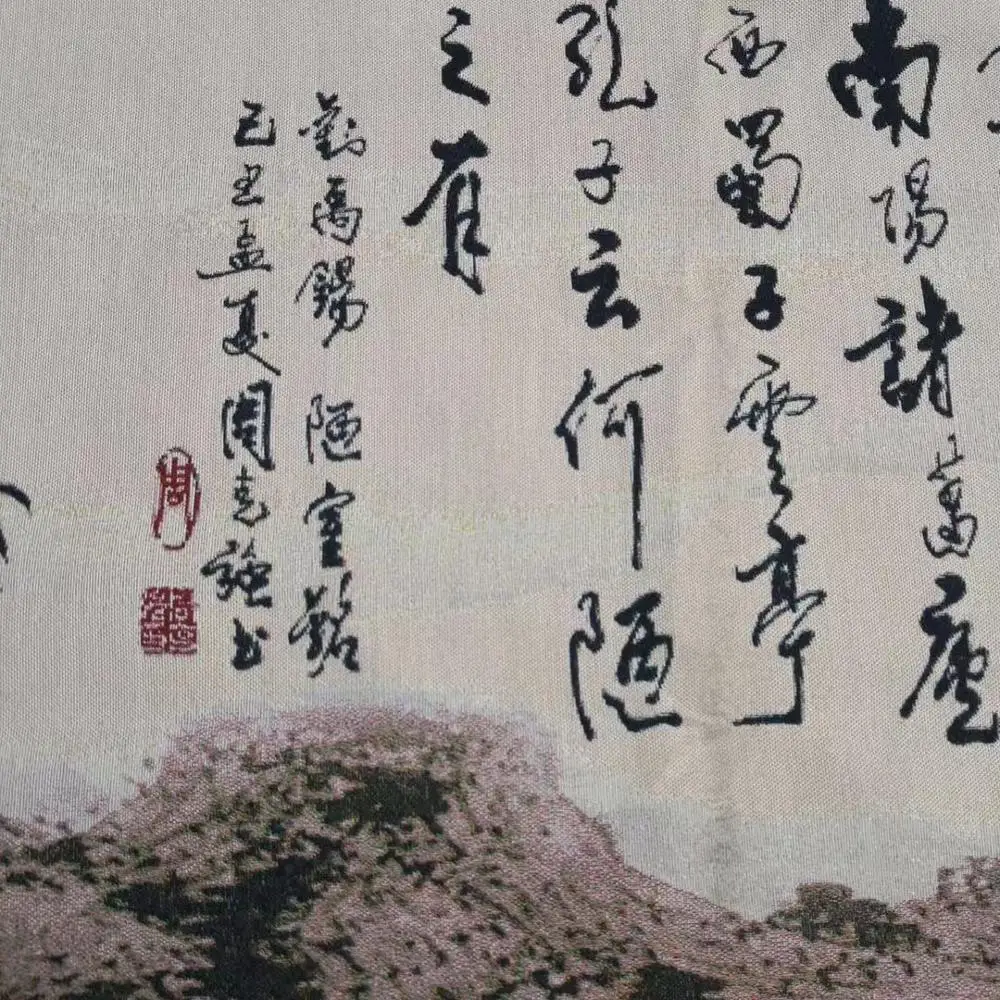 南陽諸葛廬
西蜀子雲亭
孔子云何陋
之有
劉禹錫 陋室銘
己丑孟夏周志強书
周